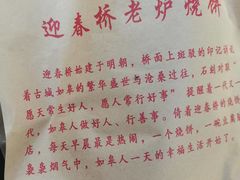 迎春桥老炉烧饼
迎春桥始建于明朝，桥面上斑驳的印记诉说
着古城如皋的繁华盛世与沧桑过往，石刻对联“
愿天常生好人，愿人常行好事”提醒着一代又一
代，如皋人做好人、行善事。倚着迎春桥的烧饼
店，每天早晨最是热闹，一个烧饼，一碗豆腐脑
袅袅烟气中，如皋人一天的幸福生活开始了。